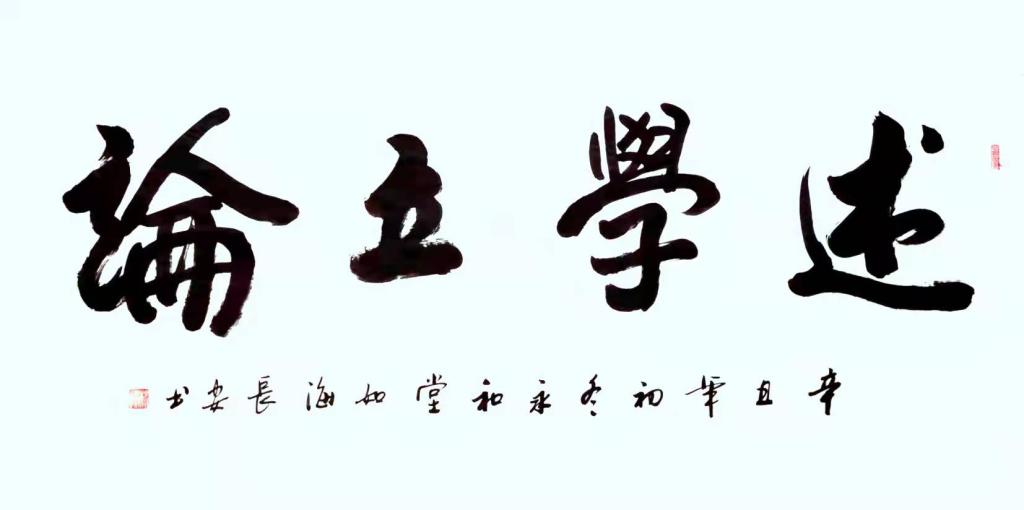 述學立論
辛丑年初冬永和堂如海長安书